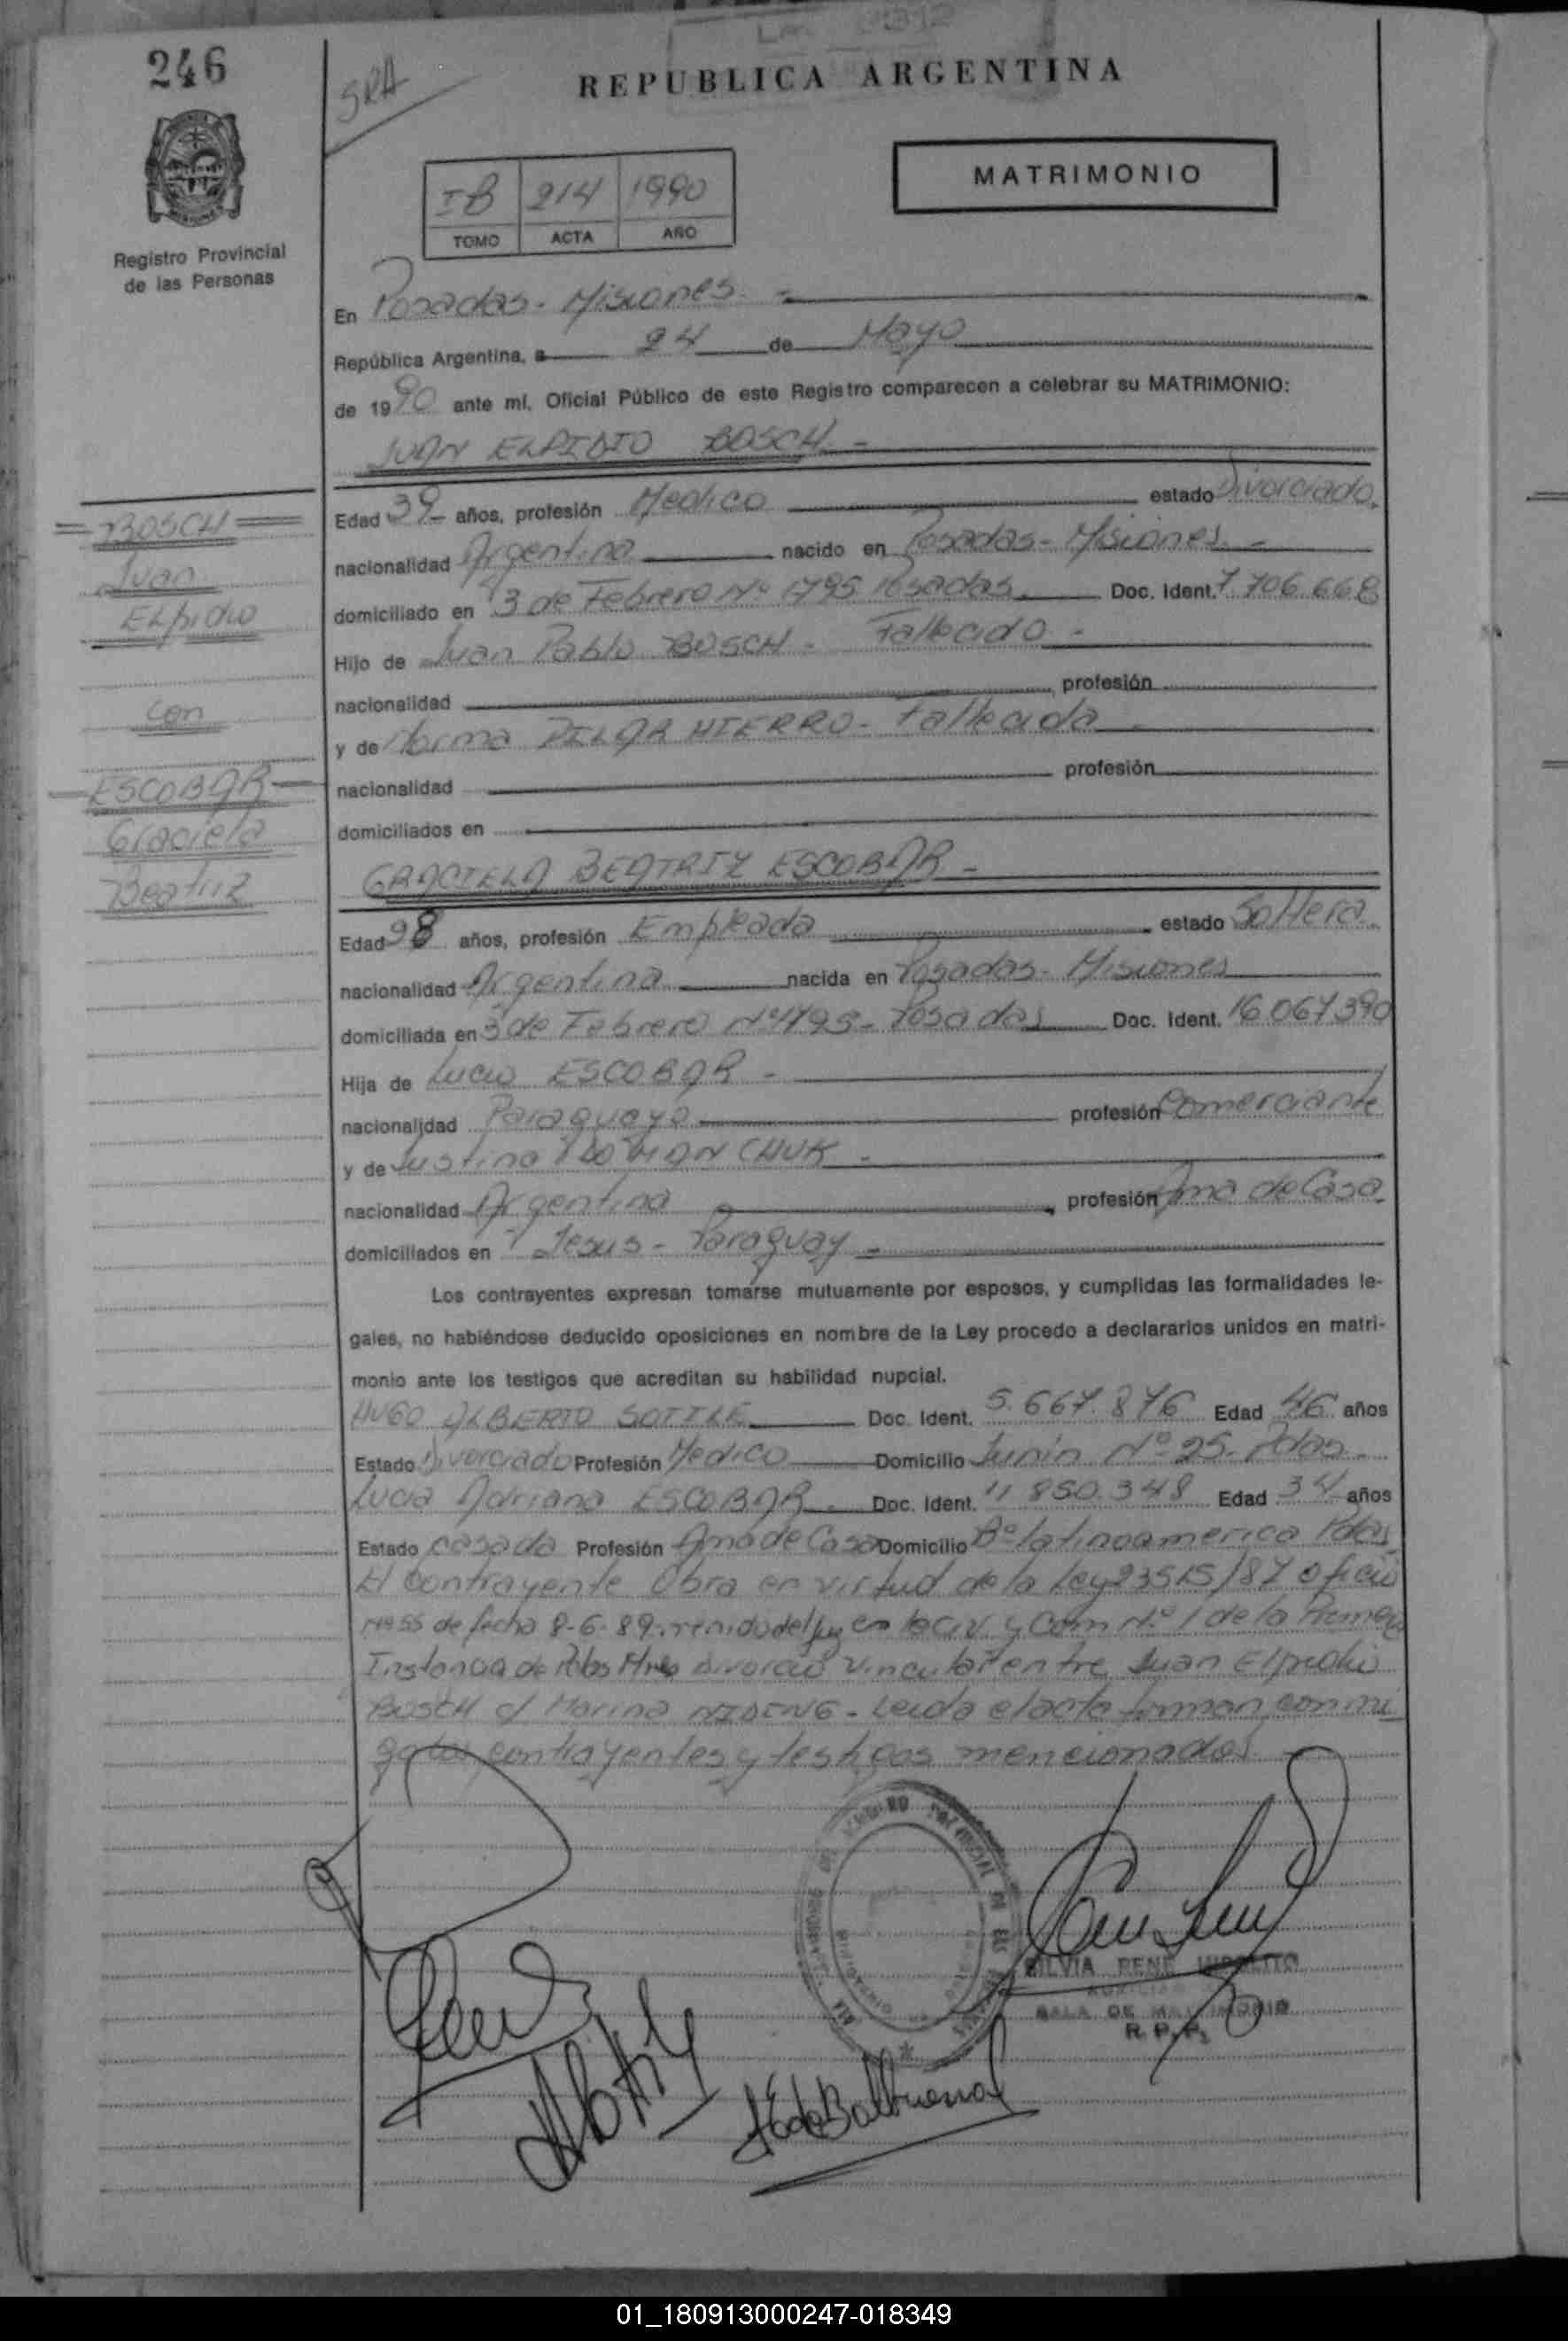 246
SRA
REPUBLICA ARGENTINA
Registro Provincial
de las Personas
IB 214 1990
TOMO ACTA AÑO
MATRIMONIO
En Posadas - Misiones. -
República Argentina, a 24 de Mayo
de 1990 ante mí, Oficial Público de este Registro comparecen a celebrar su MATRIMONIO:
JUAN ELPIDIO BOSCH -
BOSCH
Juan
Elpidio
con
ESCOBAR
Graciela
Beatriz
Edad 39 años, profesión Medico estado Divorciado.
nacionalidad Argentina nacido en Posadas - Misiones. -
domiciliado en 3 de Febrero Nº 1795 Posadas. Doc. Ident. 7.706.668
Hijo de Juan Pablo BOSCH - Fallecido -
nacionalidad profesión
y de Norma PILAR HIERRO - Fallecida -
nacionalidad profesión
domiciliados en
GRACIELA BEATRIZ ESCOBAR -
Edad 28 años, profesión Empleada estado Soltera.
nacionalidad Argentina nacida en Posadas - Misiones
domiciliada en 3 de Febrero Nº 1795 - Posadas Doc. Ident. 16.067.390
Hija de Lucio ESCOBAR -
nacionalidad Paraguaya profesión Comerciante
y de Justina CHUK -
nacionalidad Argentina profesión Ama de Casa
domiciliados en Jesus - Paraguay -
Los contrayentes expresan tomarse mutuamente por esposos, y cumplidas las formalidades le-
gales, no habiéndose deducido oposiciones en nombre de la Ley procedo a declararlos unidos en matri-
monio ante los testigos que acreditan su habilidad nupcial.
HUGO ALBERTO SOTILE Doc. Ident. 5.667.876 Edad 46 años
Estado Divorciado Profesión Medico Domicilio Junin Nº 25 - Pdas -
Lucia Adriana ESCOBAR - Doc. Ident. 11.850.348 Edad 34 años
Estado casada Profesión Ama de Casa Domicilio Bº Latinoamerica Pdas
El Contrayente Obra en virtud de la Ley 23515/87 oficio
Nº 55 de fecha 8-6-89. del Juz en lo Civ. y Com Nº 1 de la Primera
Instancia de Pdas Mnes divorcio vincular entre Juan Elpidio
BOSCH c/ Marina - Leida el acta firman conmi-
go los contrayentes y testigos mencionados
SILVIA RENE
SALA DE MATRIMONIO
R. P. P.
01_180913000247-018349